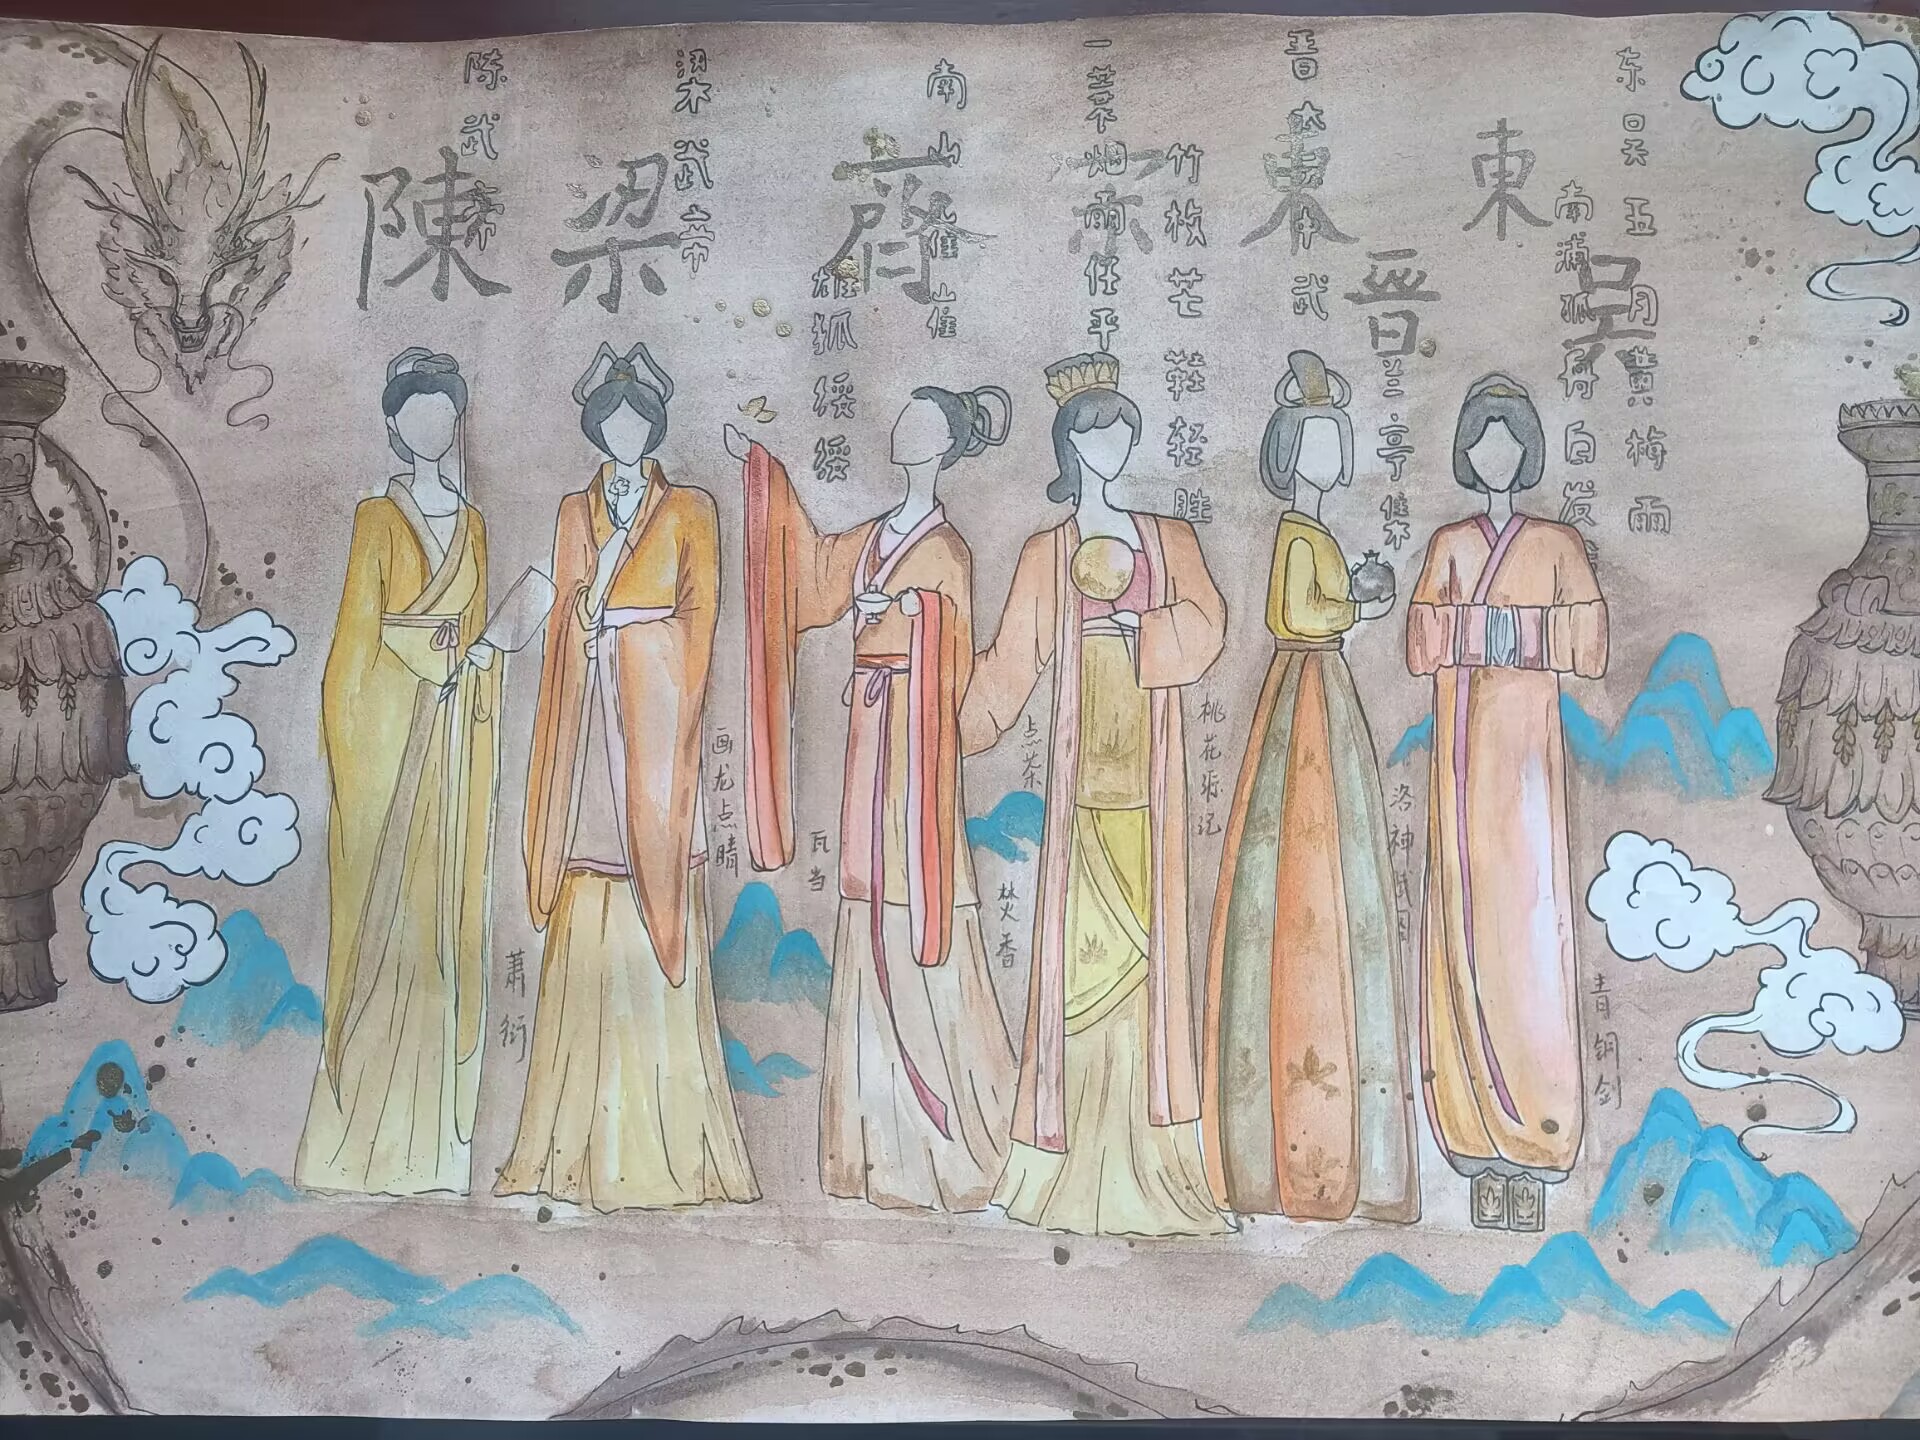 东吴五月黄梅雨
南浦孤舟白发
東吳
晋太中武
東晉
兰亭集
竹杖芒鞋轻胜
一蓑烟雨任平
宋
南山崔崔
雄狐绥绥
齊
梁武帝
梁
陈武帝
陳
青铜剑
洛神赋图
桃花源记
点茶
焚香
瓦当
画龙点睛
萧衍